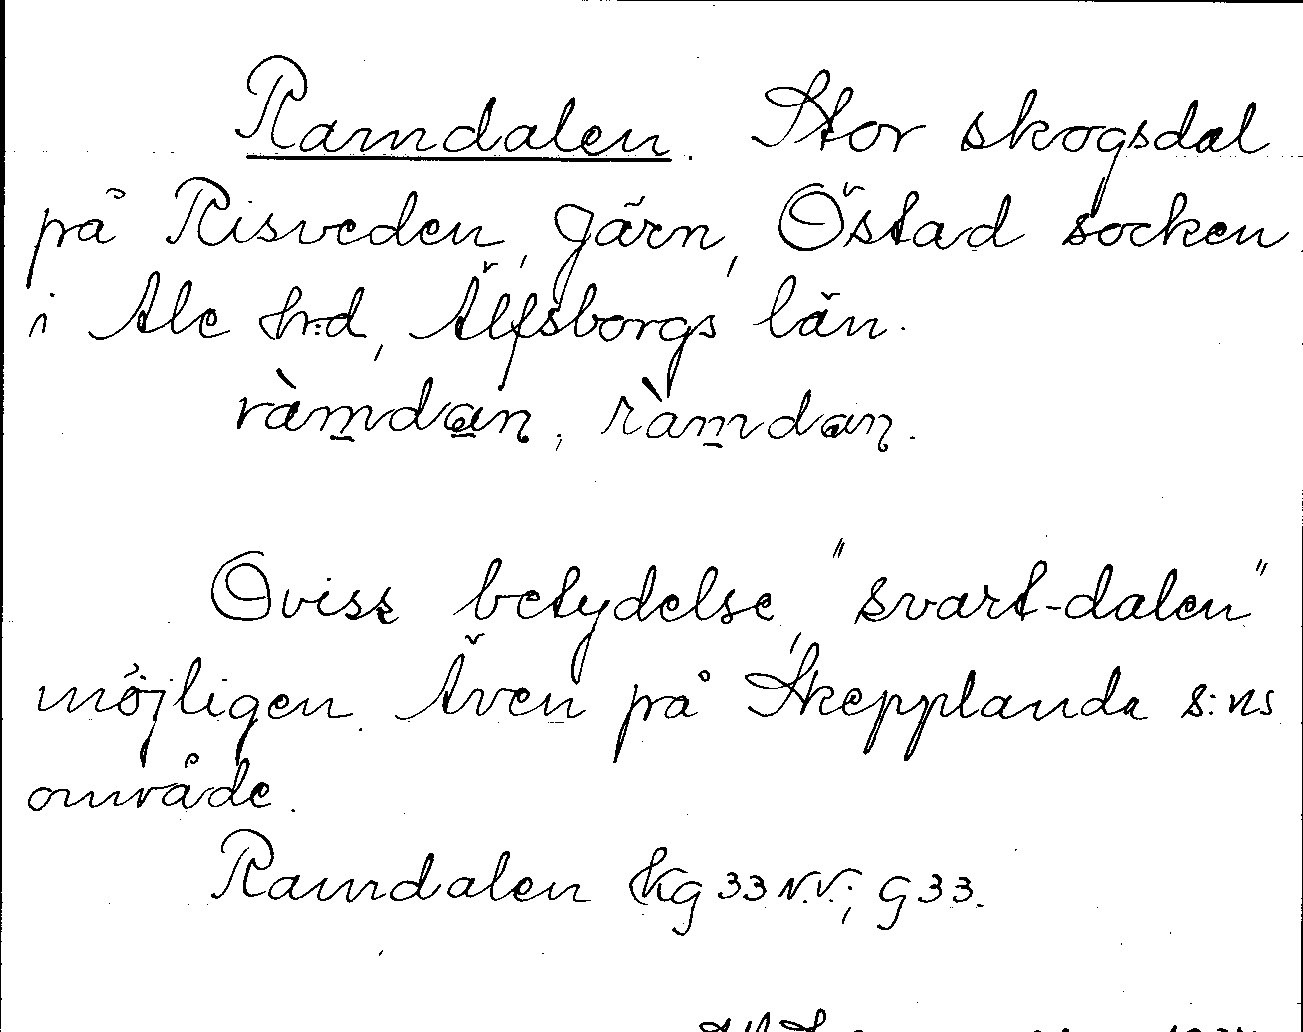 Ramdalen. Stor skogsdal
på Risveden, Järn, Östad socken
i Ale h:d, Älfsborgs län.
ràmdan, ràmdan.
Oviss betydelse, "svart-dalen"
möjligen. Även på Skepplanda s:ns
område.
Ramdalen Kg 33 N.V.; G 33.